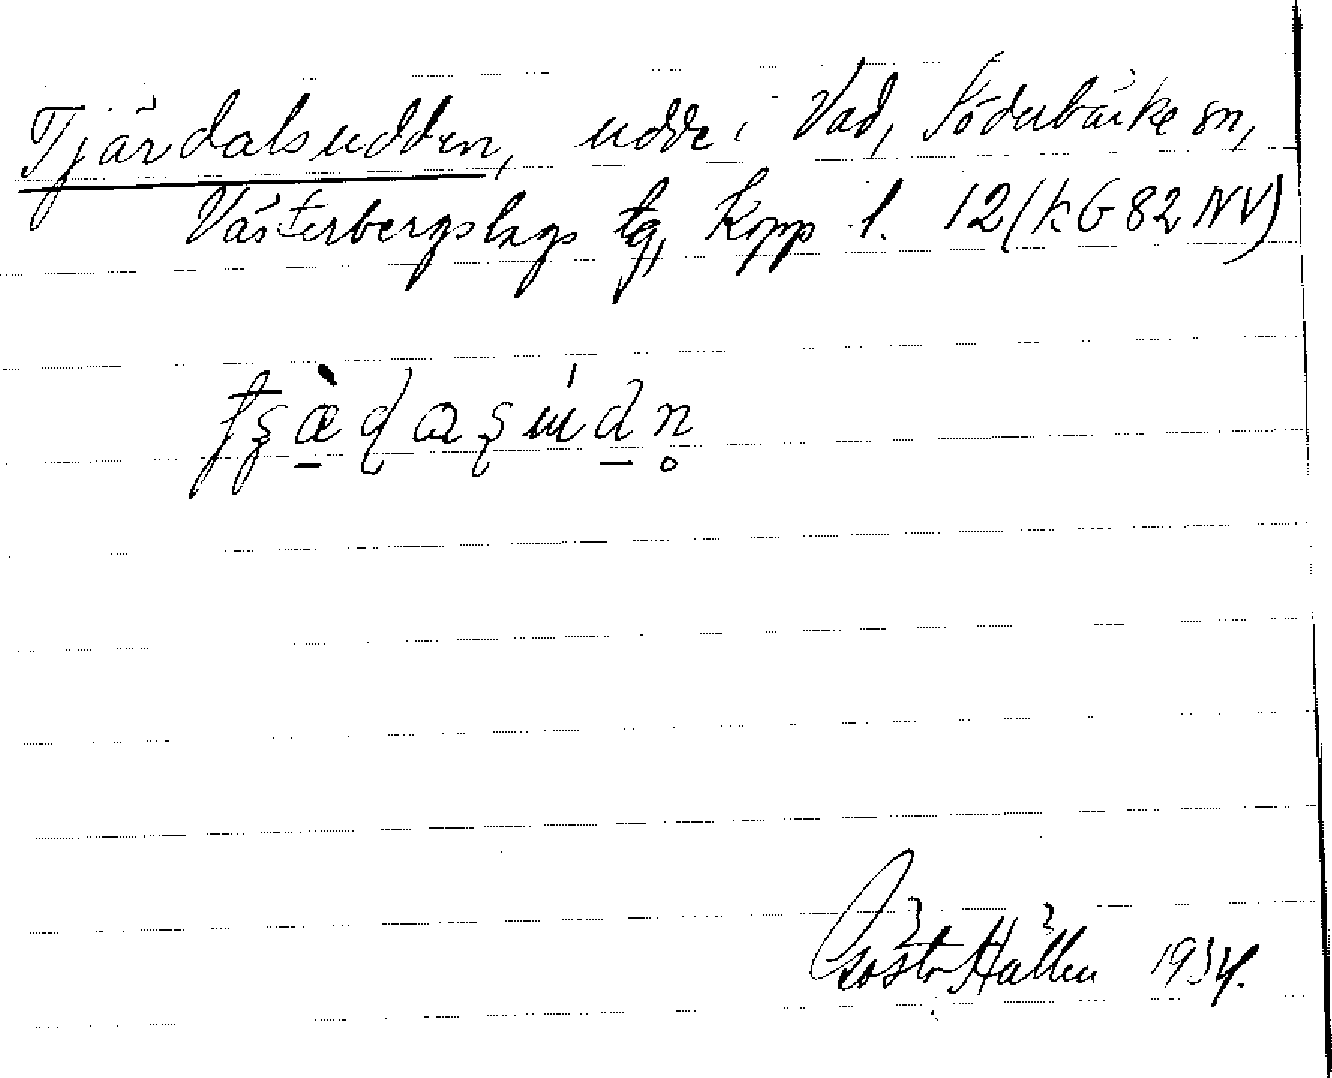 Tjärdalsudden, udde i Vad, Söderbärke sn,
Västerbergslags tg, Kopp. l. 12 (KG 82 NV)
Gösta Hällen 1934.